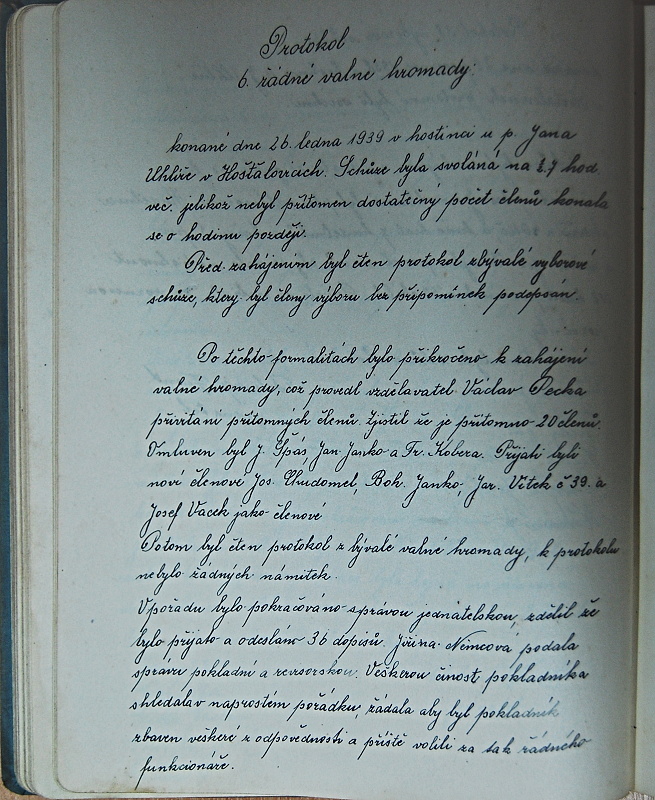 Protokol
6. řádné valné hromady:
konané dne 26. ledna 1939 v hostinci u p. Jana
Uhlíře v Hošťalovicích. Schůze byla svolána na 7 hod
več. jelikož nebyl přítomen dostatečný počet členů konala
se o hodinu později.
Před zahájením byl čten protokol zbývalé výborové
schůze, který byl členy výboru bez připomínek podepsán.
Po těchto formalitách bylo přikročeno k zahájení
valné hromady, což provedl vzdělavatel Václav Pecka
přivítání přítomných členů. Zjistil že je přítomno 20 členů.
Omluven byl J. Spás, Jan Janko a Fr. Kobera. Přijati byli
noví členové Jos. Chudomel, Boh. Janko, Jar. Vítek č 39. a
Josef Vacek jako členové
Potom byl čten protokol z bývalé valné hromady, k protokolu
nebylo žádných námitek.
Vpořadu bylo pokračováno správou jednatelskou, zdělil že
bylo přijato a odesláno 36 dopisů. Jiřina Němcová podala
správu pokladní a revsorskou. Veškerou činost pokladníka
shledala v naprostém pořádku, žádala aby byl pokladník
zbaven veškeré z odpovědnosti a příště volili za tak řádného
funkcionáře.